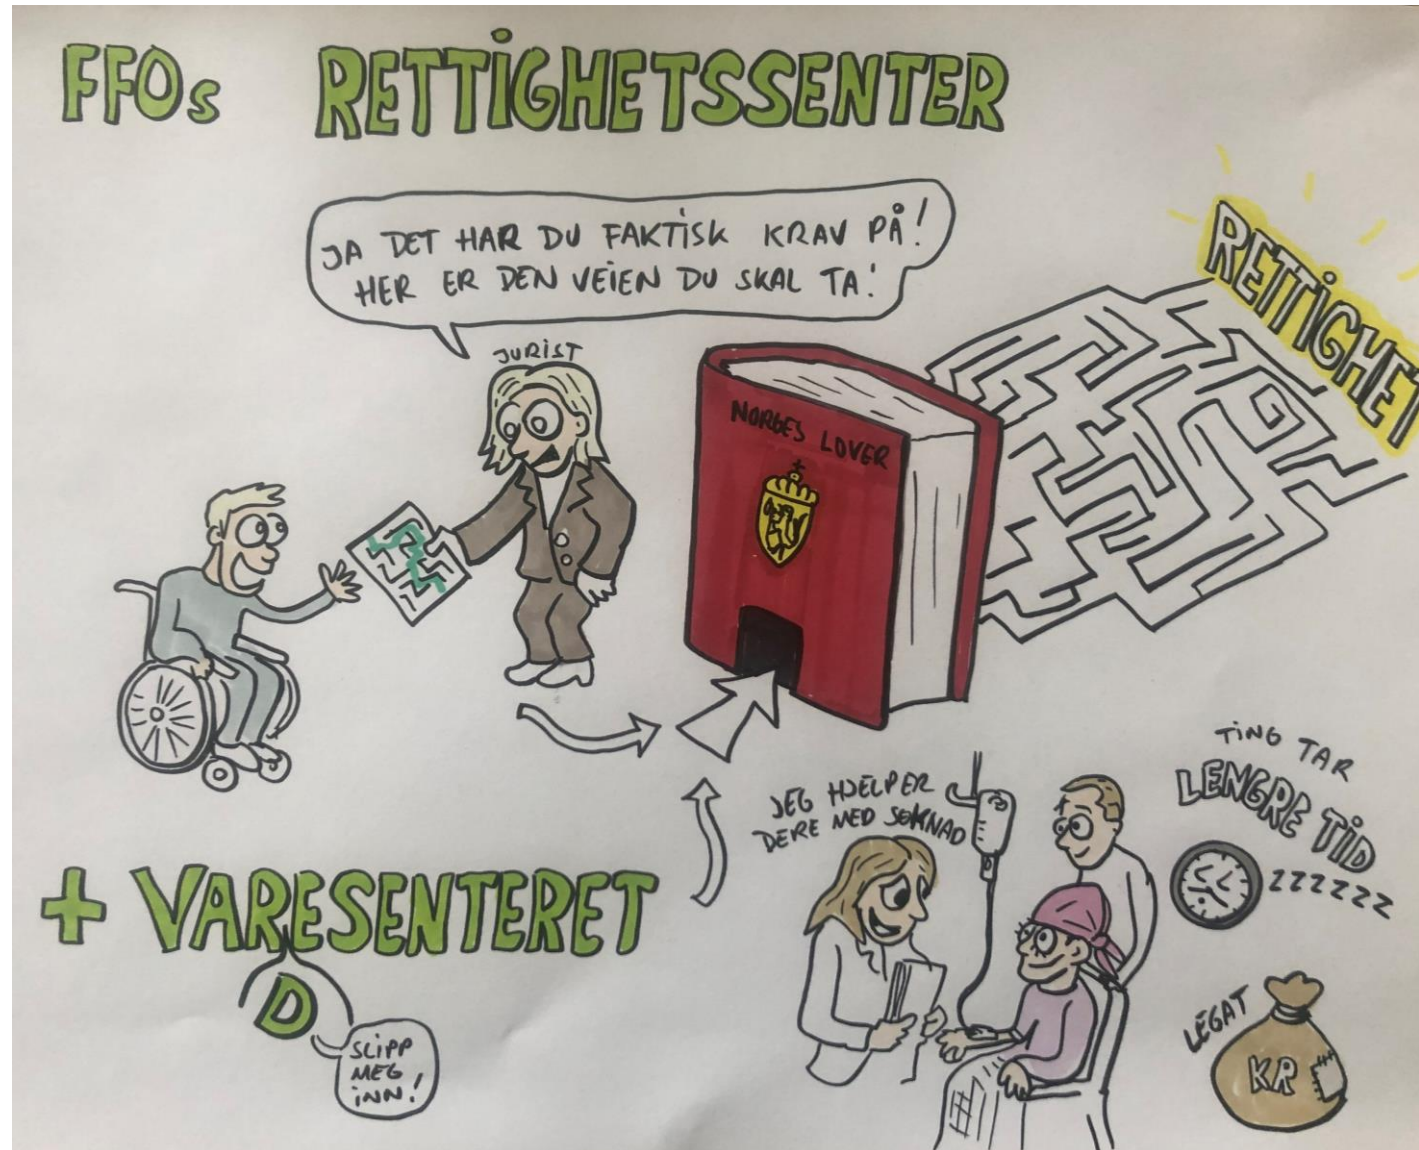 FFOs RETTIGHETSSENTER
JA DET HAR DU FAKTISK KRAV PÅ!
HER ER DEN VEIEN DU SKAL TA!
JURIST
NORGES LOVER
RETTIGHET
+ VARESENTERET
D
SLIPP
MEG
INN!
JEG HJELPER
DERE MED SØKNAD
TING TAR
LENGRE TID
ZZZZZZ
LEGAT
KR